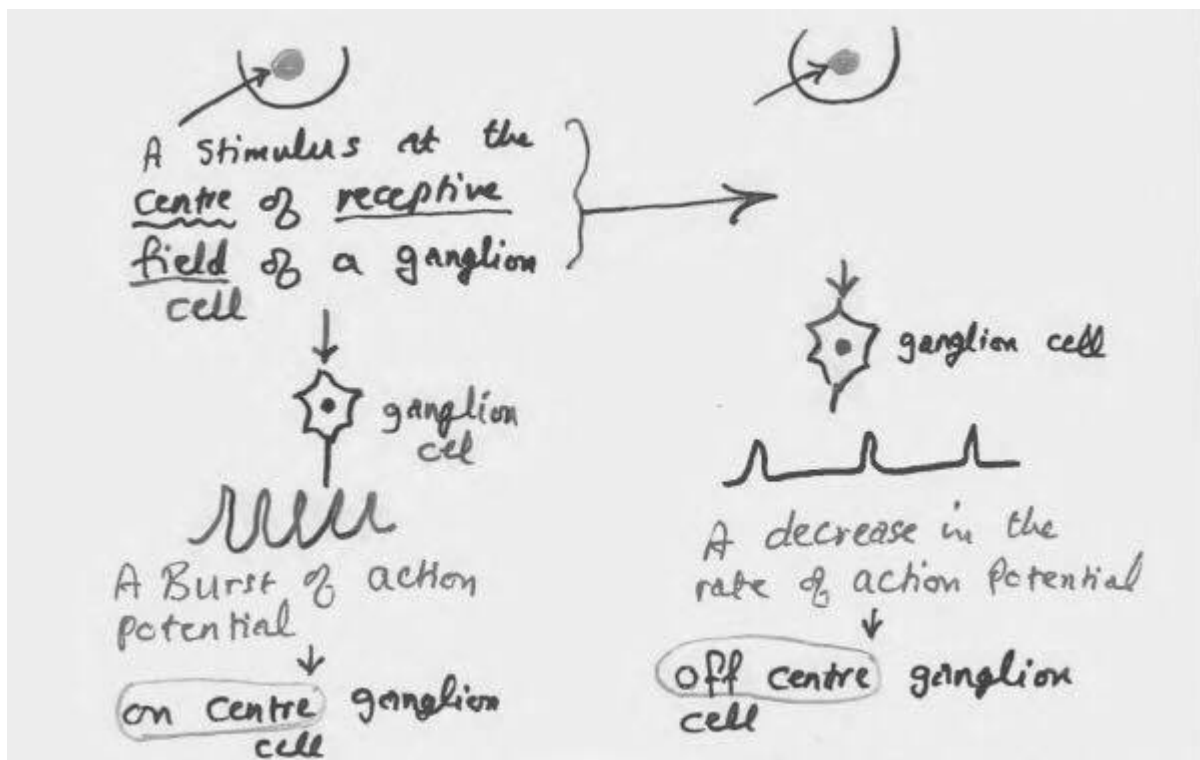 A stimulus at the
centre of receptive
field of a ganglion
cell
ganglion
cell
A Burst of action
potential
on centre ganglion
cell
ganglion cell
A decrease in the
rate of action Potential
off centre ganglion
cell